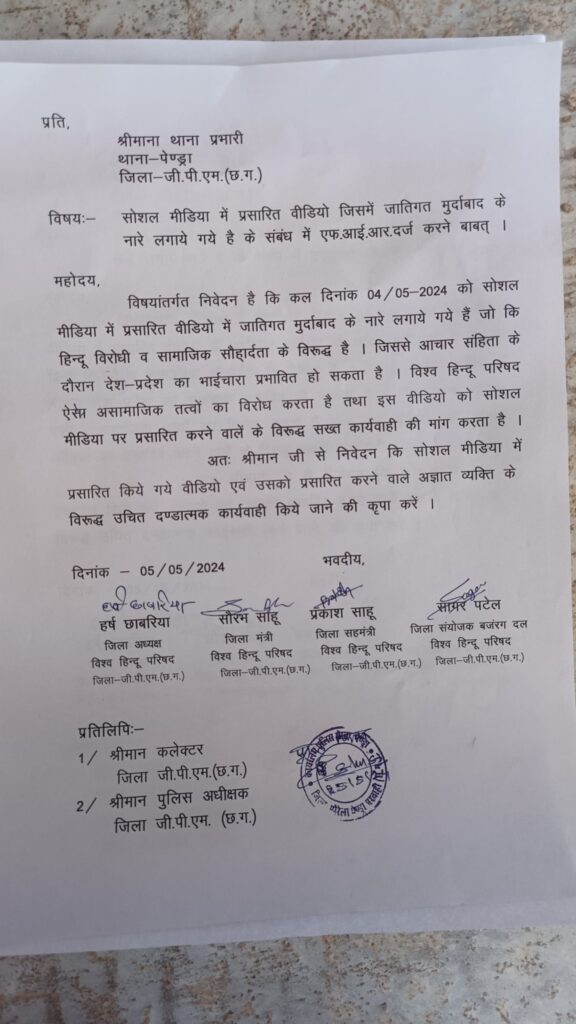 प्रति,
श्रीमाना थाना प्रभारी
थाना–पेण्ड्रा
जिला–जी.पी.एम.(छ.ग.)
विषयः– सोशल मीडिया में प्रसारित वीडियो जिसमें जातिगत मुर्दाबाद के
नारे लगाये गये है के संबंध में एफ.आई.आर.दर्ज करने बाबत् ।
महोदय,
विषयांतर्गत निवेदन है कि कल दिनांक 04/05–2024 को सोशल
मीडिया में प्रसारित वीडियो में जातिगत मुर्दाबाद के नारे लगाये गये हैं जो कि
हिन्दू विरोधी व सामाजिक सौहार्दता के विरूद्ध है । जिससे आचार संहिता के
दौरान देश–प्रदेश का भाईचारा प्रभावित हो सकता है । विश्व हिन्दू परिषद
असामाजिक तत्वों का विरोध करता है तथा इस वीडियो को सोशल
मीडिया पर प्रसारित करने वालें के विरूद्ध सख्त कार्यवाही की मांग करता है ।
अतः श्रीमान जी से निवेदन कि सोशल मीडिया में
प्रसारित किये गये वीडियो एवं उसको प्रसारित करने वाले अज्ञात व्यक्ति के
विरूद्ध उचित दण्डात्मक कार्यवाही किये जाने की कृपा करें ।
दिनांक – 05/05/2024 भवदीय,
हर्ष छाबरिया सौरभ साहू प्रकाश साहू सागर पटेल
जिला अध्यक्ष जिला मंत्री जिला सहमंत्री जिला संयोजक बजरंग दल
विश्व हिन्दू परिषद विश्व हिन्दू परिषद विश्व हिन्दू परिषद विश्व हिन्दू परिषद
जिला–जी.पी.एम.(छ.ग.) जिला–जी.पी.एम.(छ.ग.) जिला–जी.पी.एम.(छ.ग.) जिला–जी.पी.एम.(छ.ग.)
प्रतिलिपिः–
1/ श्रीमान कलेक्टर
जिला जी.पी.एम.(छ.ग.)
2/ श्रीमान पुलिस अधीक्षक
जिला जी.पी.एम. (छ.ग.)